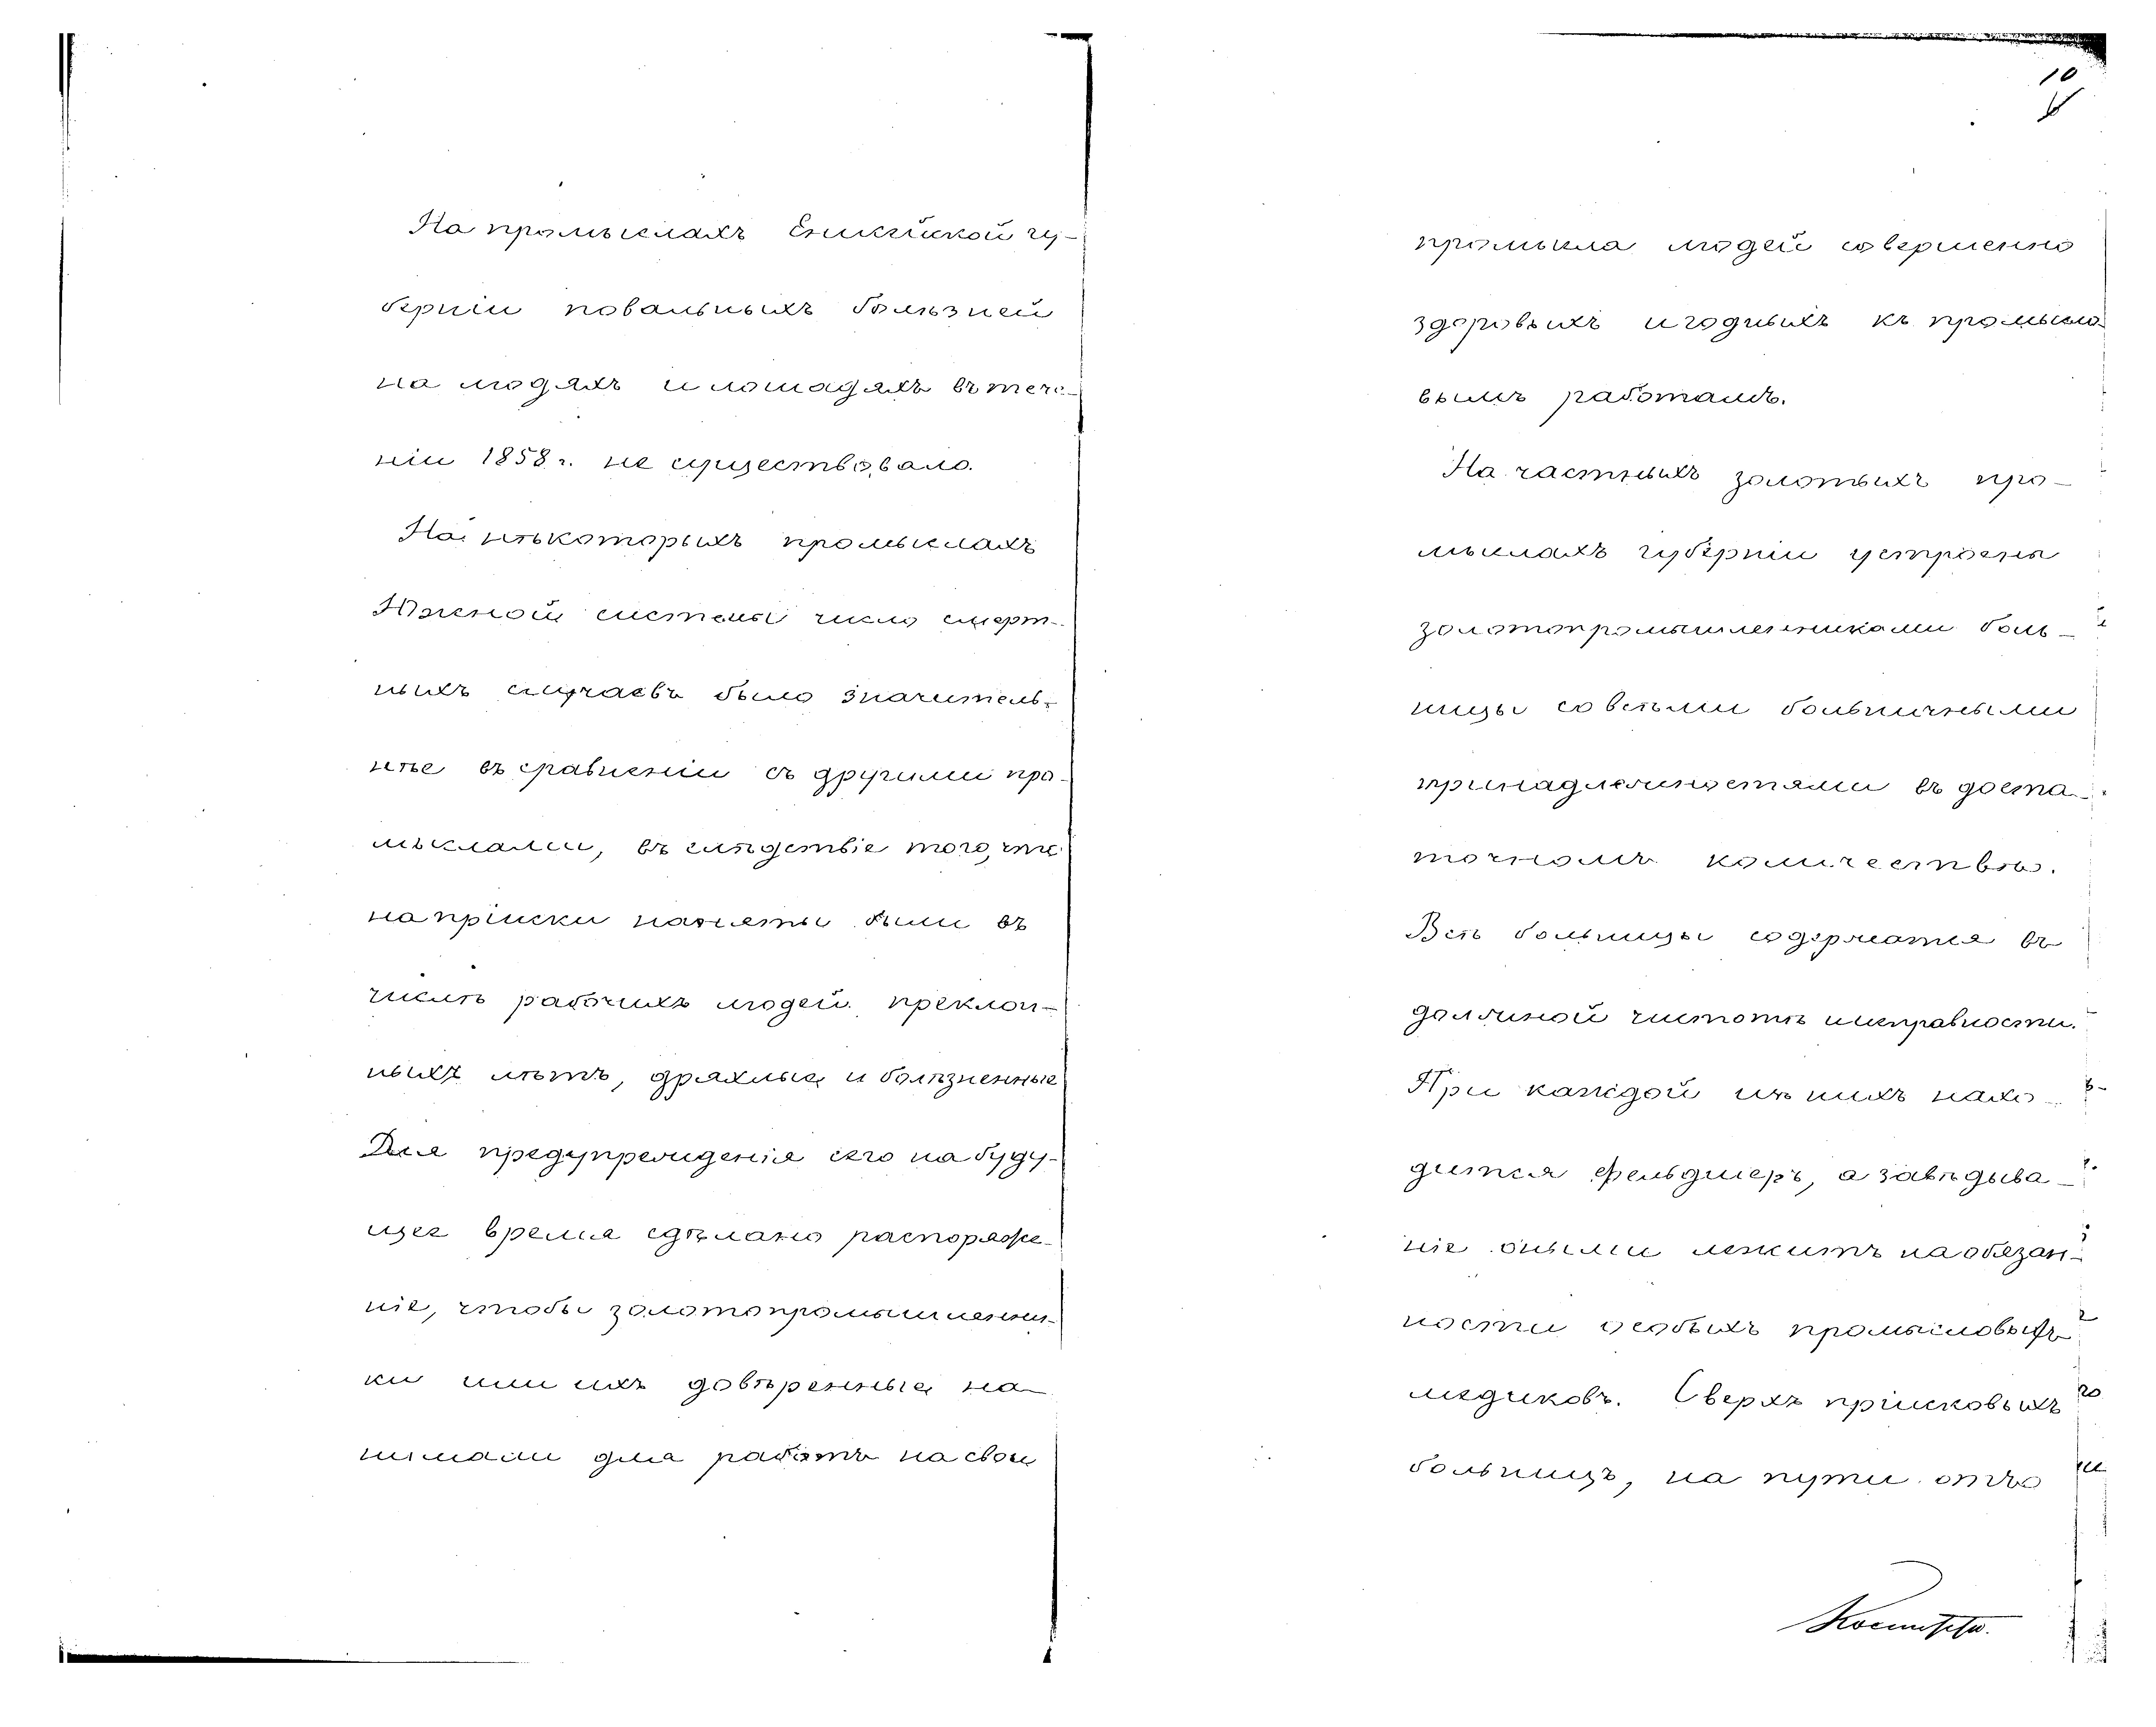 На промыслахъ Енисейской гу-
берніи повальныхъ болѣзней
на людяхъ и лошадяхъ въ тече-
ніи 1858 г. не существовало.
На нѣкоторыхъ промыслахъ
Южной системы число смерт-
ныхъ случаевъ было значитель-
нѣе въ сравненіи съ другими про-
мыслами, въ слѣдствіе того, что
на пріиски наняты были въ
числѣ рабочихъ людей преклон-
ныхъ лѣтъ, дряхлые и болѣзненные
Для предупрежденія сего на буду-
щее время сдѣлано распоряже-
ніе, чтобы золотопромышленни-
ки или ихъ довѣренные на-
нимали для работъ на свои
10
промысла людей совершенно
здоровыхъ и годныхъ къ промысло-
вымъ работамъ.
На частныхъ золотыхъ про-
мыслахъ губерніи устроены
золотопромышленниками боль-
ницы со всѣми больничными
принадлежностями въ доста-
точномъ количествѣ.
Всѣ больницы содержатся въ
должной чистотѣ и исправности.
При каждой изъ нихъ нахо-
дится фельдшеръ, а завѣдыва-
ніе оными лежитъ на обязан-
ности особыхъ промысловыхъ
медиковъ. Сверхъ пріисковыхъ
больницъ, на пути отъ